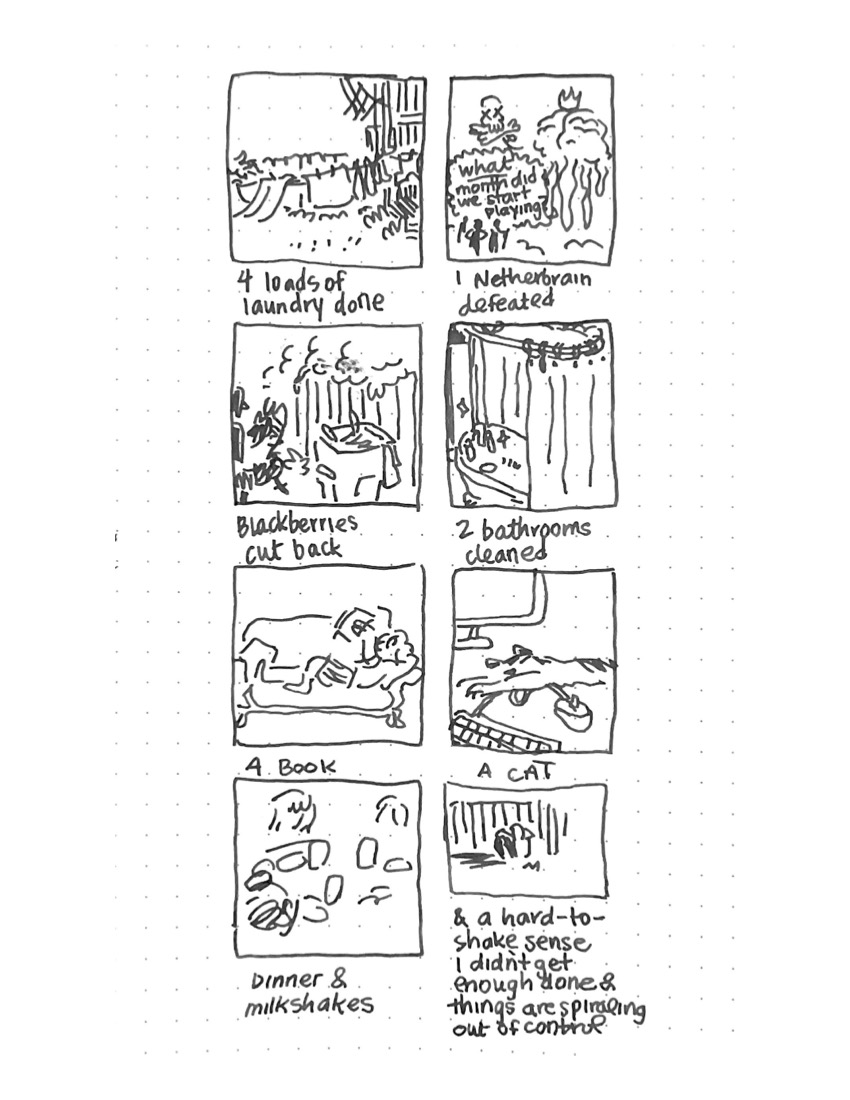 4 loads of
laundry done
what
month did
we start
playing?
1 Netherbrain
defeated
Blackberries
cut back
2 bathrooms
cleaned
A BOOK
A CAT
Dinner &
milkshakes
& a hard-to-
shake sense
I didn't get
enough done &
things are spiraling
out of control